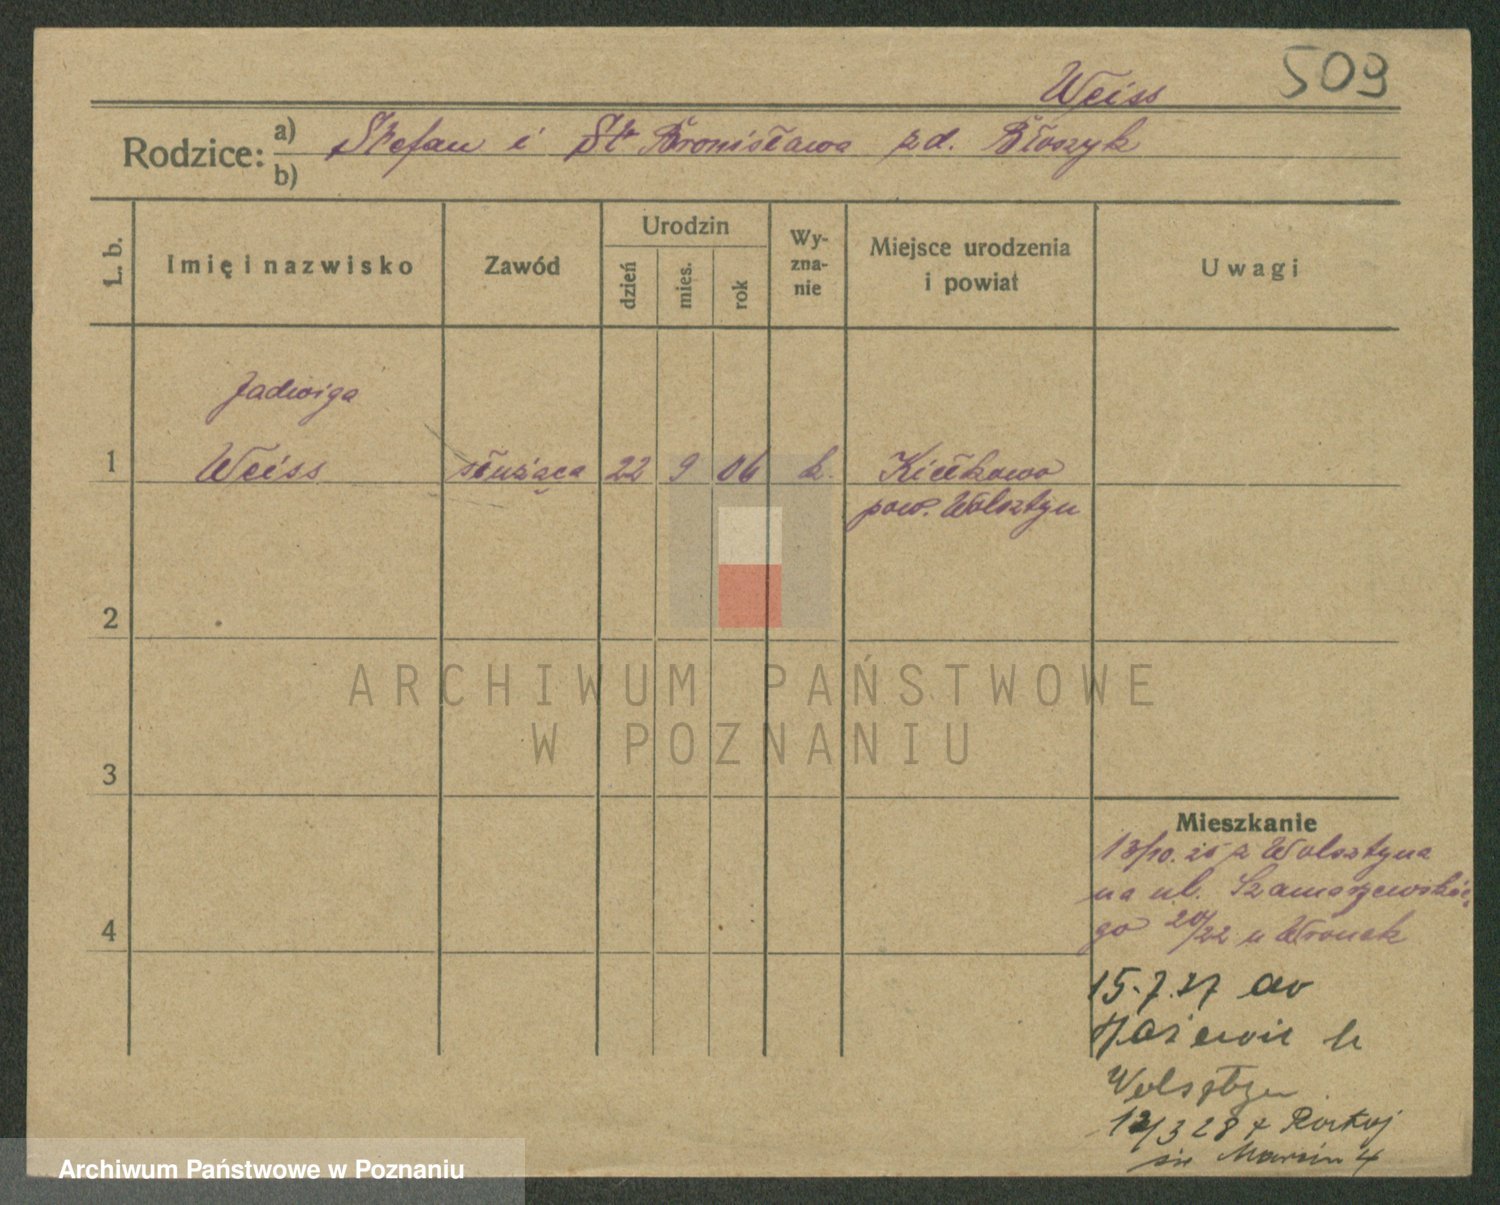 509
Weiss
Rodzice: a) Stefan i St Bronisława zd. Błoszyk
b)
L. b.
Imię i nazwisko
Zawód
Urodzin
dzień
mies.
rok
Wy-
zna-
nie
Miejsce urodzenia
i powiat
Uwagi
Jadwiga
1 Weiss służąca 22 9 06 k. Kiełkowo
pow. Wolsztyn
2
3
4
ARCHIWUM PAŃSTWOWE
W POZNANIU
Mieszkanie
13/10. 25 z Wolsztyna
na ul. Szamarzewskie
go 20/22 u Wronek
15.7.27 do
k
Wolsztyn
12/3 28
Marcin 4
Archiwum Państwowe w Poznaniu